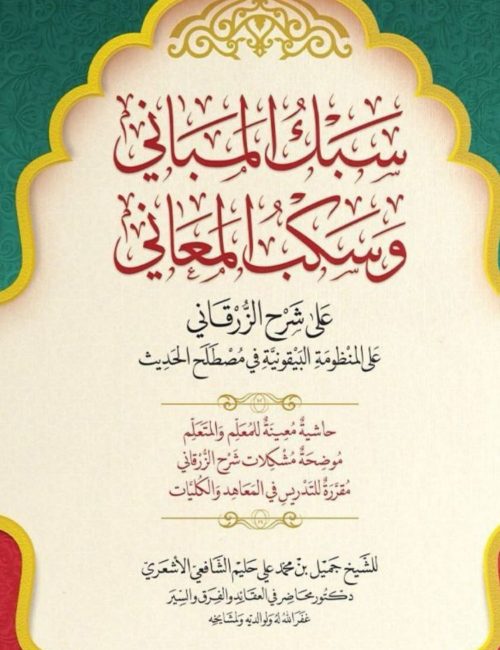 سَبْكُ المَبَاني
وَسَكبُ المَعَاني
عَلى شَرْحِ الزُّرْقَاني
عَلى المَنْظُومَةِ البَيْقُونيَّةِ في مُصْطَلَحِ الحَدِيث
حَاشِيةٌ مُعِينَةٌ للمُعَلِّمِ وَالمتَعَلِّمِ
مُوضِحَةٌ مُشْكِلات شَرْحِ الزُّرْقَاني
مُقَرَّرَةٌ للتَدْرِيسِ في المَعَاهِدِ وَالكُليَّات
للشَّيخِ جَميْل بْن مُحَمَّد عَلي حَليْم الشَّافعِيّ الأشعَريّ
دكتور محاضر في العقائد والفِرَق والسِيَر
غفَر اللهُ لهُ وَلوالديْهِ وَلمشَايخِهِ